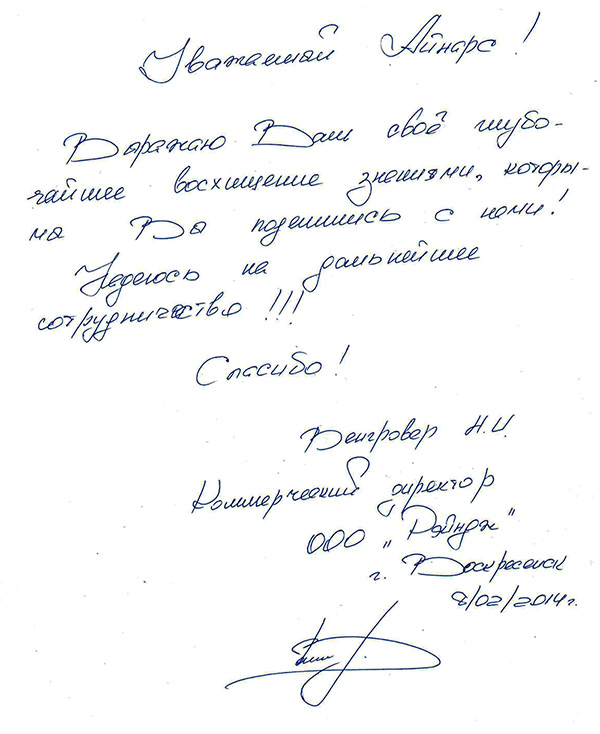 Уважаемый Айнарс!
Выражаю Вам своё глубо-
чайшее восхищение знаниями, которы-
ми Вы поделились с нами!
Надеюсь на дальнейшее
сотрудничество!!!
Спасибо!
Венгровер Н.И.
Коммерческий директор
ООО „Рэйндж"
г. Воскресенск
8/02/2014г.